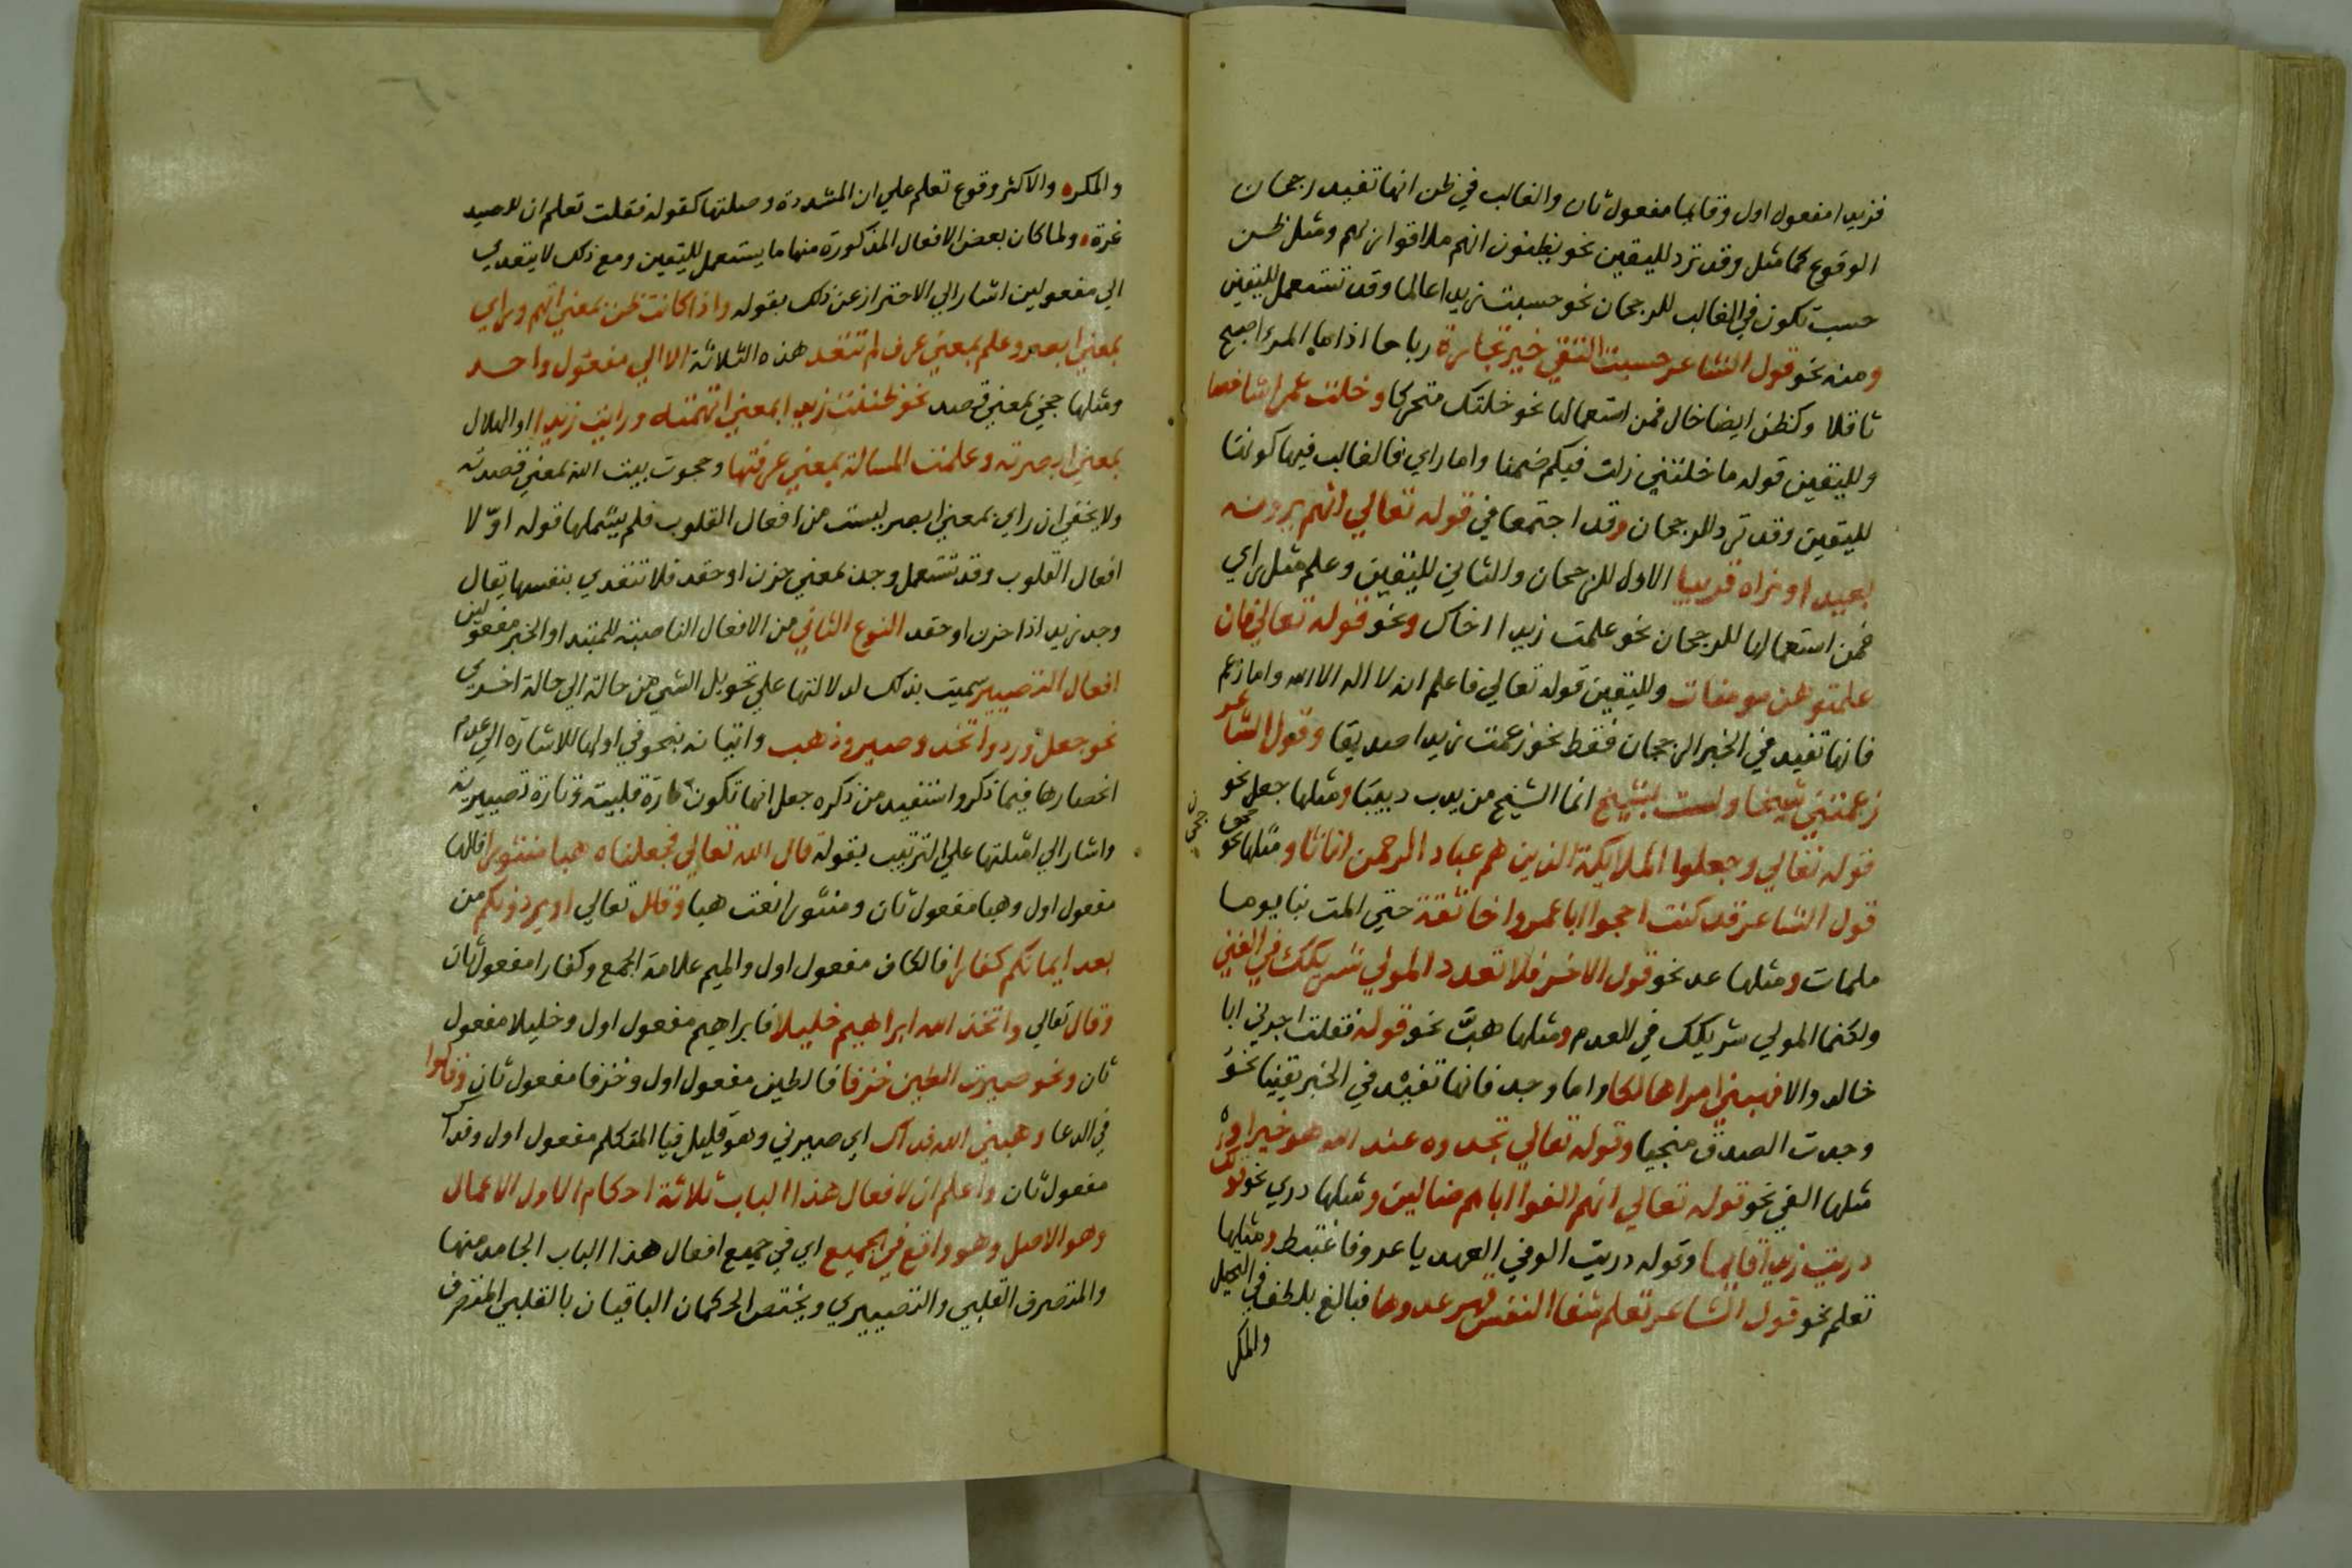 فزيدا مفعول اول وقايما مفعول ثان والغالب في ظن انها تفيد رجحان
الوقوع كما مثل وقد ترد لليقين نحو يظنون انهم ملاقوا ربهم ومثل ظن
حسب تكون في الغالب للرجحان نحو حسبت زيدا عالما وقد تستعمل لليقين
ومنه نحو قول الشاعر حسبت التقي خير تجارة رباحا اذا ما المرء اصبح
ثاقلا وكظن ايضا خال فمن استعمالها نحو خلتك متحركا وخلت عمرا شاخصا
ولليقين قوله ما خلتني زلت فيكم ضمنا واما راي فالغالب فيها كونها
لليقين وقد ترد للرجحان وقد اجتمعا في قوله تعالي انهم يرونه
بعيدا ونراه قريبا الاول للرجحان والثاني لليقين وعلم مثل راي
فمن استعمالها للرجحان نحو علمت زيدا اخاك ونحو قوله تعالي فان
علمتموهن مومنات ولليقين قوله تعالي فاعلم انه لا اله الا الله واما زعم
فانها تفيد في الخبر الرجحان فقط نحو زعمت زيدا صديقا وقول الشاعر
زعمتني شيخا ولست بشيخ انما الشيخ من يدب دبيبا ومثلها جعل نحو
قوله تعالي وجعلوا الملايكة الذين هم عباد الرحمن اناثا ومثلها حجي نحو
قول الشاعر قد كنت احجوا ابا عمروا خا ثقة حتي المت بنا يوما
ملمات ومثلها عد نحو قول الاخر فلا تعدد المولي شريكك في الغني
ولكنما المولي شريكك في العدم ومثلها هب نحو قوله فقلت اجرني ابا
خالد والا فهبني امرا هالكا واما وجد فانها تفيد في الخبر يقينا نحو
وجدت الصدق منجيا وقوله تعالي تجدوه عند الله هو خيرا و
مثلها الفي نحو قوله تعالي انهم الفوا اباهم ضالين ومثلها دري نحو قولك
دريت زيدا قايما وقوله دريت الوفي العهد يا عروفاغتبط ومثلها
تعلم نحو قول الشاعر تعلم شفا النفس قهر عدوها فبالغ بلطف في التحيل
والمكر
والمكره والاكثر وقوع تعلم علي ان المشددة وصلتها كقوله فقلت تعلم ان للصيد
غرة ولما كان بعض الافعال المذكورة منها ما يستعمل لليقين ومع ذلك لا يتعدي
الي مفعولين اشار الي الاحتراز عن ذلك بقوله واذا كانت ظن بمعني اتهم وراي
بمعني ابصر وعلم بمعني عرف لم تتعد هذه الثلاثة الا الي مفعول واحد
ومثلها حجي بمعني قصد نحو ظننت زيدا بمعني اتهمته ورايت زيدا او الهلال
بمعني ابصرته وعلمت المسالة بمعني عرفتها وحجوت بيت الله بمعني قصدته
ولا يخفي ان راي بمعني ابصر ليست من افعال القلوب فلم يشملها قوله اولا
افعال القلوب وقد تستعمل وجد بمعني حزن او حقد فلا تتعدي بنفسها يقال
وجد زيد اذا حزن او حقد النوع الثاني من الافعال الناصبة للمبتدا والخبر مفعولين
افعال التصيير سميت بذلك لدلالتها علي تحويل الشي من حالة الي حالة اخري
نحو جعل ورد واتخذ وصير وذهب واتيانه بنحو في اولها للاشارة الي عدم
انحصارها فيما ذكر واستفيد من ذكره جعل انها تكون تارة قلبية وتارة تصييرية
واشار الي امثلتها علي الترتيب بقوله قال الله تعالي فجعلناه هبا منثورا فالها
مفعول اول وهبا مفعول ثان ومنثورا نعت هبا وقال تعالي او يردونكم من
بعد ايمانكم كفارا فالكاف مفعول اول والميم علامة الجمع وكفارا مفعول ثان
وقال تعالي واتخذ الله ابراهيم خليلا فابراهيم مفعول اول وخليلا مفعول
ثان ونحو صيرت الطين خزفا فالطين مفعول اول وخزفا مفعول ثان وقالوا
في الدعا وهبني الله فداك اي صيرني وهو قليل فيا المتكلم مفعول اول وفداك
مفعول ثان واعلم ان لافعال هذا الباب ثلاثة احكام الاول الاعمال
وهو الاصل وهو واقع في الجميع اي في جميع افعال هذا الباب الجامد منها
والمتصرف القلبي والتصييري ويختص الحكمان الباقيان بالقلبي المتصرف